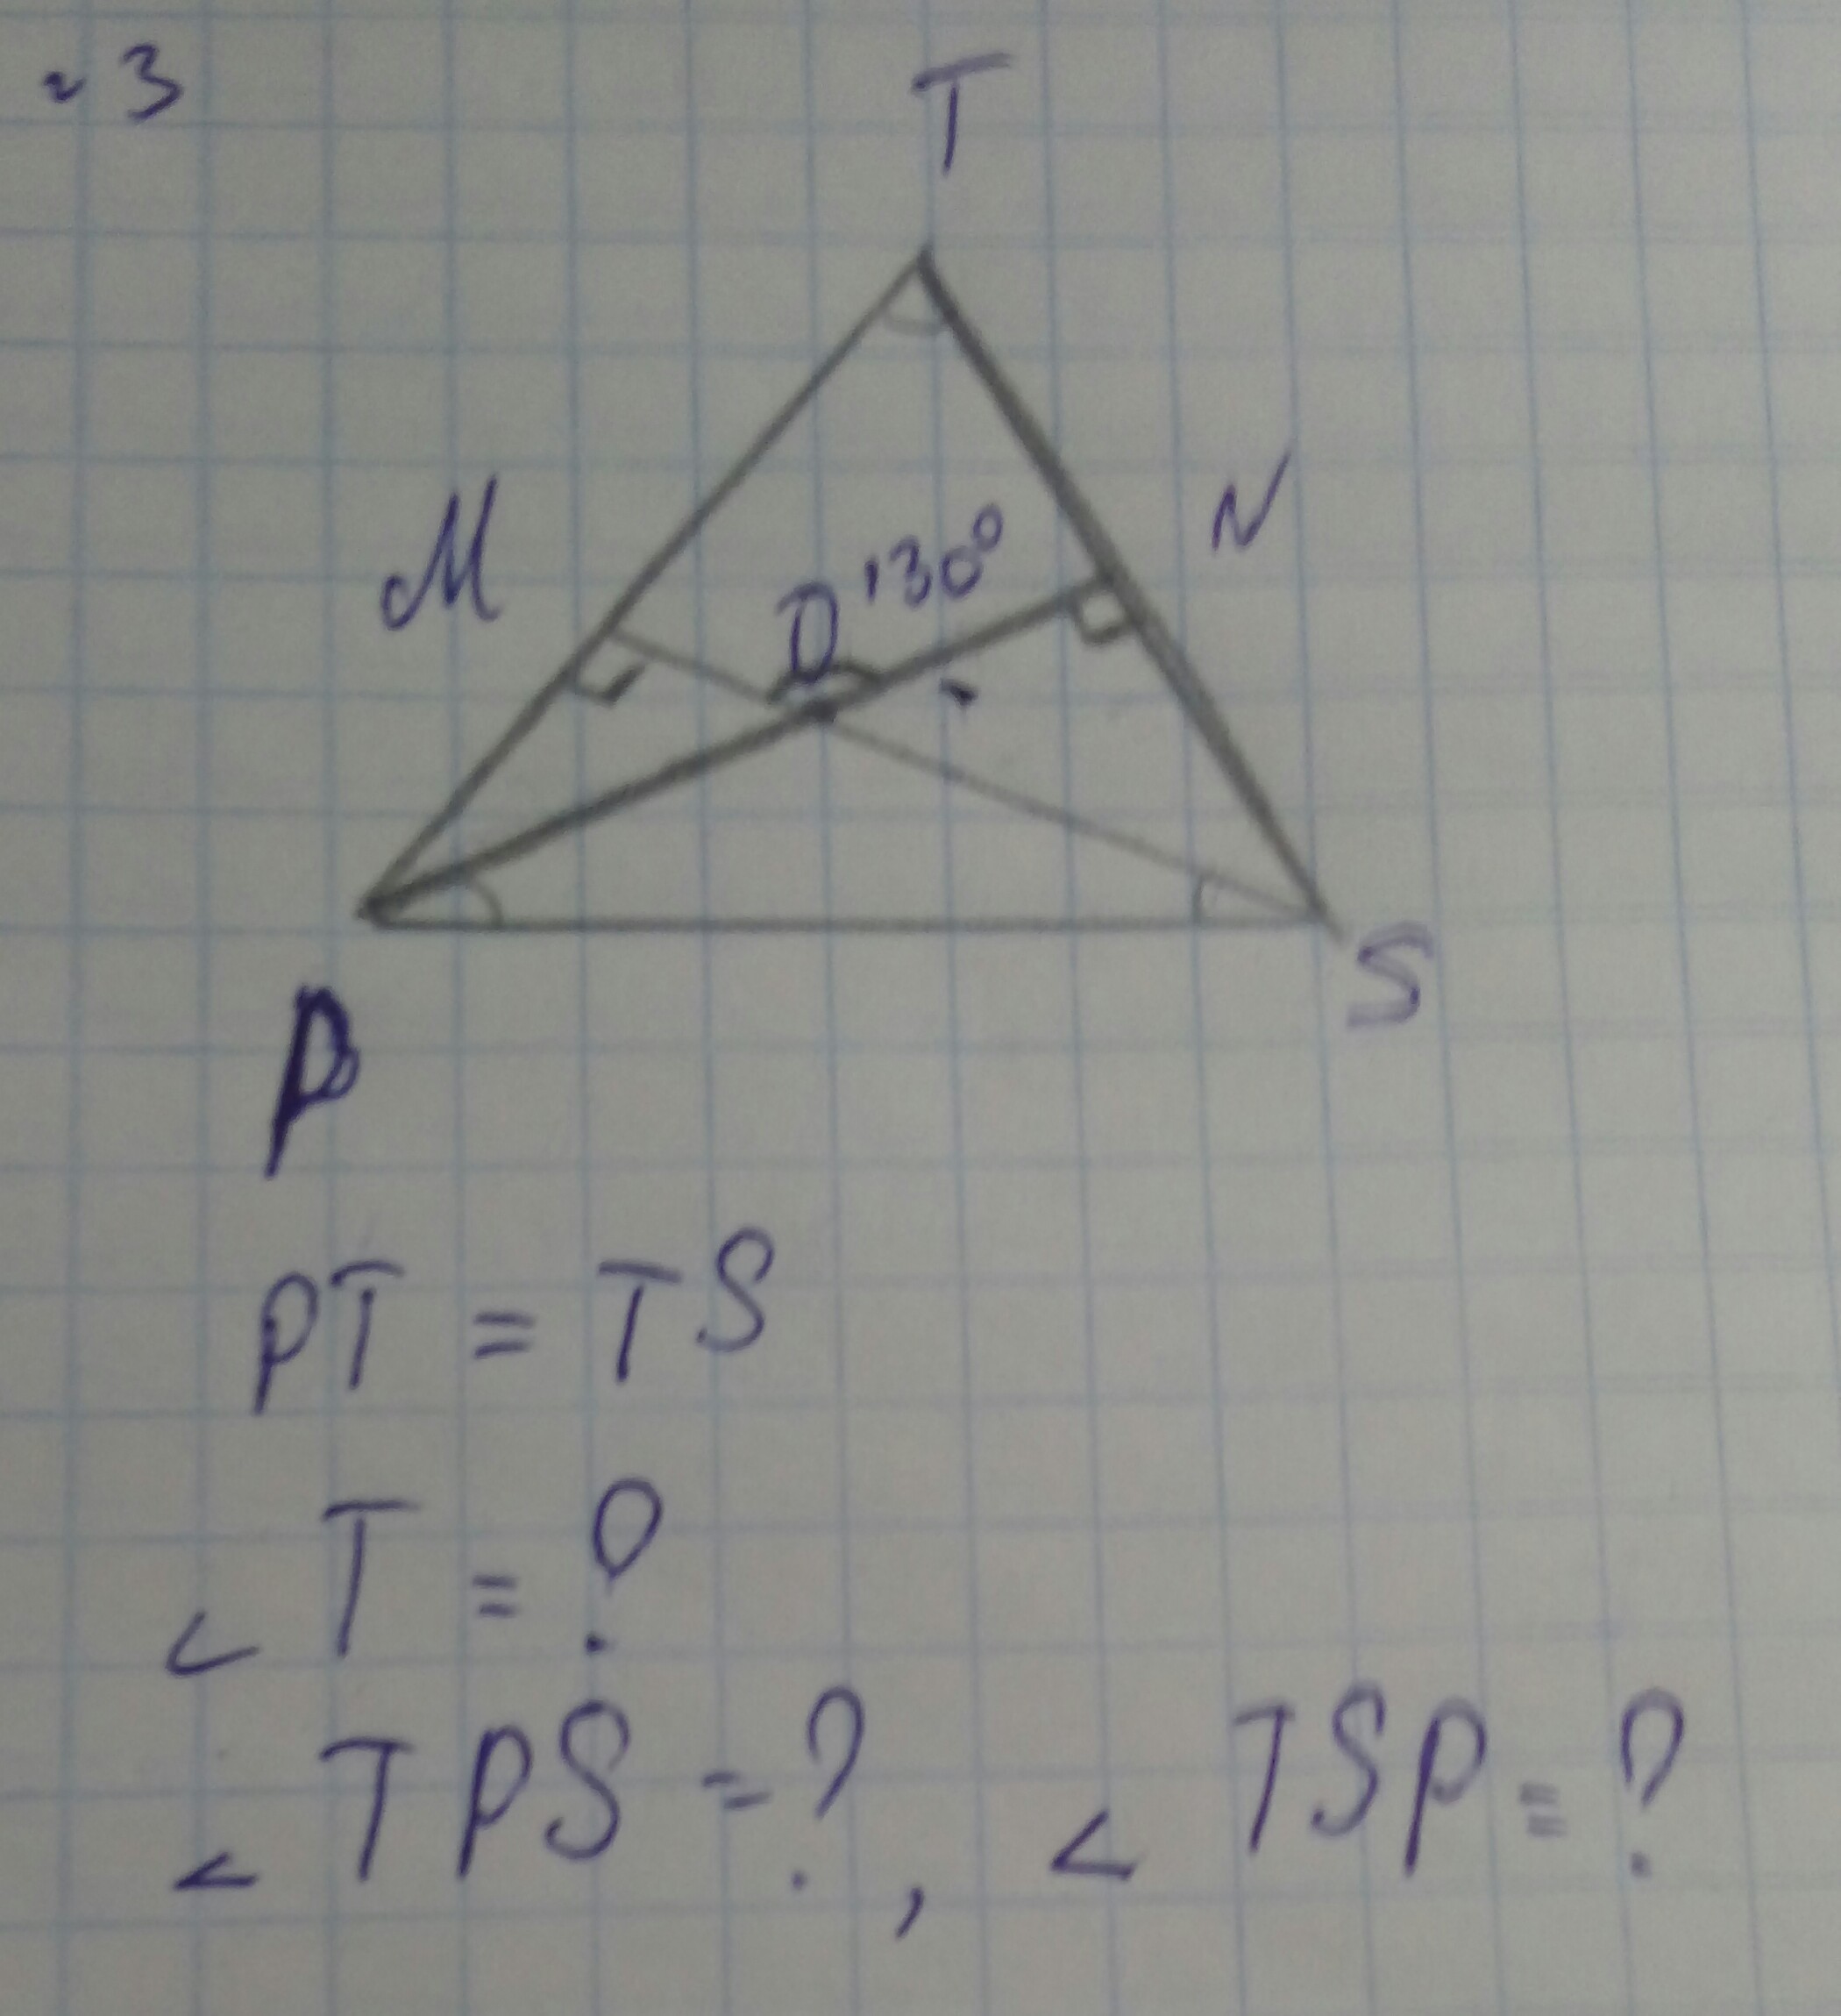 ~3
T
M
N
D 130°
P
S
PT = TS
< T = ?
< TPS = ?, < TSP = ?